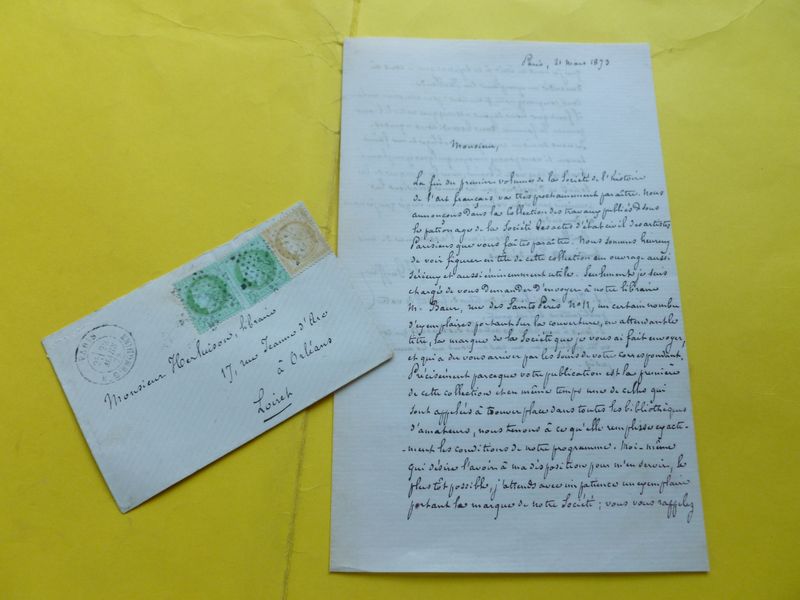 Paris, 21 mars 1873
Monsieur,
La fin du premier volume de la Société de l'histoire
de l'art français va très prochainement paraître. Nous
annonçons dans la Collection des travaux publiés sous
le patronage de la Société les actes d'état civil des artistes
Parisiens que vous faites paraître. Nous sommes heureux
de voir figurer en tête de cette collection un ouvrage aussi
sérieux et aussi éminemment utile. Seulement je suis
chargé de vous demander d'envoyer à notre libraire
M. Baur, rue des Saints Pères No 11, un certain nombre
d'exemplaires portant sur la couverture, en attendant le
titre, la marque de la Société que je vous ai fait envoyer,
et qui a du vous arriver par les soins de votre correspondant.
Précisément parceque votre publication est la première
de cette collection et en même temps une de celles qui
sont appelées à trouver place dans toutes les bibliothèques
d'amateurs, nous tenons à ce qu'elle remplisse exacte-
-ment les conditions de notre programme. Moi-même
qui désire l'avoir à ma disposition pour m'en servir, le
plus tôt possible, j'attends avec impatience un exemplaire
portant la marque de notre Société ; vous vous rappelez
PARIS
Monsieur Herluison, libraire
17, rue Jeanne d'Arc
à Orléans
Loiret